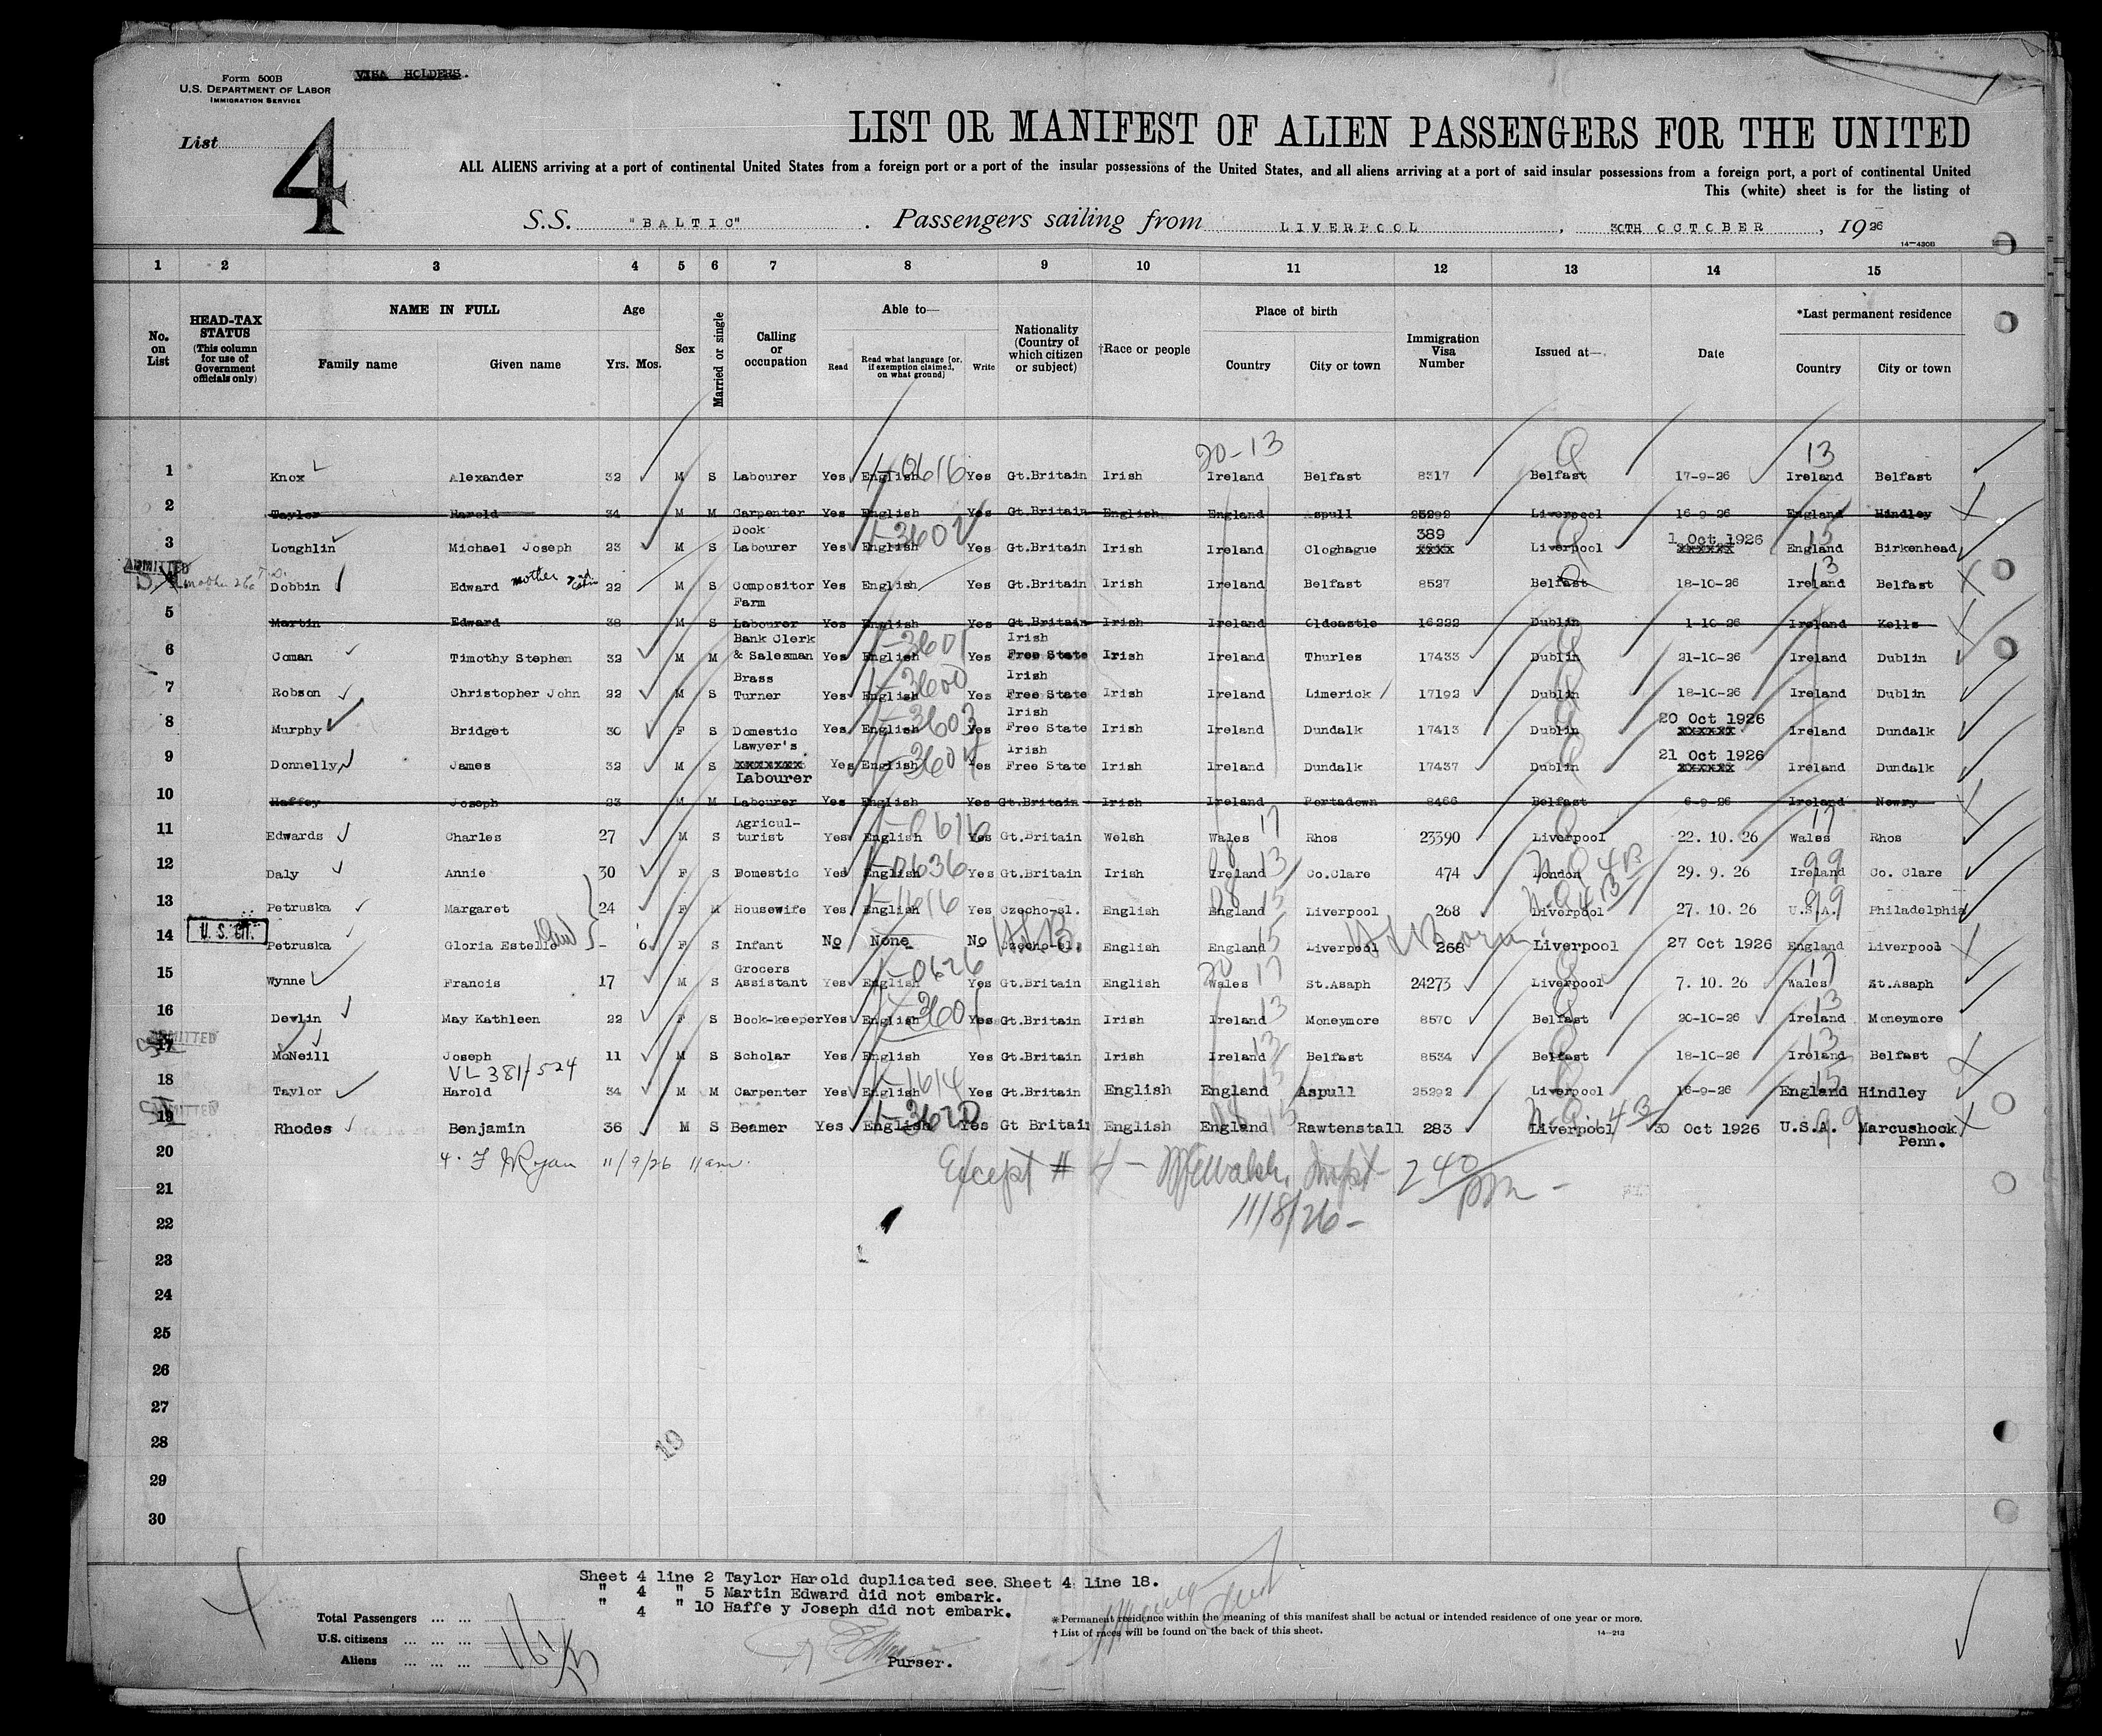 Form 500B
U.S. DEPARTMENT OF LABOR
IMMIGRATION SERVICE
VISA HOLDERS.
List 4
LIST OR MANIFEST OF ALIEN PASSENGERS FOR THE UNITED
ALL ALIENS arriving at a port of continental United States from a foreign port or a port of the insular possessions of the United States, and all aliens arriving at a port of said insular possessions from a foreign port, a port of continental United
This (white) sheet is for the listing of
S.S. "BALTIC" . Passengers sailing from LIVERPOOL , 30TH OCTOBER , 19 26
14—430B
1 2 3 4 5 6 7 8 9 10 11 12 13 14 15
No. on List
HEAD-TAX STATUS (This column for use of Government officials only)
NAME IN FULL
Family name Given name
Age
Yrs. Mos.
Sex
Married or single
Calling or occupation
Able to—
Read
Read what language [or, if exemption claimed, on what ground]
Write
Nationality (Country of which citizen or subject)
†Race or people
Place of birth
Country City or town
Immigration Visa Number
Issued at—
Date
*Last permanent residence
Country City or town
20-13 13
1 Knox Alexander 32 M S Labourer Yes English Yes Gt.Britain Irish Ireland Belfast 8317 Belfast 17-9-26 Ireland Belfast
2 Taylor Harold 34 M M Carpenter Yes English Yes Gt.Britain English England Aspull 25292 Liverpool 16-9-26 England Hindley
3 Loughlin Michael Joseph 23 M S Dock Labourer Yes English 3602 Yes Gt.Britain Irish Ireland Cloghague 389 xxxx Liverpool 1 Oct 1926 xxxxxx England 15 Birkenhead
ADMITTED
4 Dobbin Edward mother 22 M S Compositor Yes English Yes Gt.Britain Irish Ireland Belfast 8527 Belfast 18-10-26 Ireland 13 Belfast
5 Martin Edward 38 M S Farm Labourer Yes English Yes Gt.Britain Irish Ireland Oldcastle 16222 Dublin 1-10-26 Ireland Kells
6 Coman Timothy Stephen 32 M M Bank Clerk & Salesman Yes English 3601 Yes Irish Free State Irish Ireland Thurles 17433 Dublin 21-10-26 Ireland Dublin
7 Robson Christopher John 22 M S Brass Turner Yes English 3600 Yes Irish Free State Irish Ireland Limerick 17192 Dublin 18-10-26 Ireland Dublin
8 Murphy Bridget 30 F S Domestic Yes English 3603 Yes Irish Free State Irish Ireland Dundalk 17413 Dublin 20 Oct 1926 xxxxxx Ireland Dundalk
9 Donnelly James 32 M S Lawyer's xxxxxxx Labourer Yes English 3604 Yes Irish Free State Irish Ireland Dundalk 17437 Dublin 21 Oct 1926 xxxxxx Ireland Dundalk
10 Haffey Joseph 23 M M Labourer Yes English Yes Gt.Britain Irish Ireland Portadown 8466 Belfast 6-9-26 Ireland Newry
11 Edwards Charles 27 M S Agricul-turist Yes English 0616 Yes Gt.Britain Welsh Wales 17 Rhos 23390 Liverpool 22.10.26 Wales 17 Rhos
12 Daly Annie 30 F S Domestic Yes English 0636 Yes Gt.Britain Irish Ireland 13 Co.Clare 474 London 4B 29.9.26 Ireland 99 Co. Clare
13 Petruska Margaret 24 F M Housewife Yes English 1616 Yes Czecho-sl. English England 15 Liverpool 268 Liverpool 4B 27.10.26 U.S.A. 99 Philadelphia
U. S. CIT.
14 Petruska Gloria Estelle - 6 F S Infant No None No Czecho-sl. USB English England 15 Liverpool 268 Liverpool 27 Oct 1926 England Liverpool
15 Wynne Francis 17 M S Grocers Assistant Yes English 0626 Yes Gt.Britain English Wales 20 17 St.Asaph 24273 Liverpool 7.10.26 Wales 17 St.Asaph
16 Devlin May Kathleen 22 F S Book-keeper Yes English 3601 Yes Gt.Britain Irish Ireland 13 Moneymore 8570 Belfast 20-10-26 Ireland 13 Moneymore
ADMITTED
17 McNeill Joseph 11 M S Scholar Yes English Yes Gt.Britain Irish Ireland 13 Belfast 8534 Belfast 18-10-26 Ireland 13 Belfast
VL 381/524
18 Taylor Harold 34 M M Carpenter Yes English 1614 Yes Gt.Britain English England 15 Aspull 25292 Liverpool 16-9-26 England 15 Hindley
ADMITTED
19 Rhodes Benjamin 36 M S Beamer Yes English 3620 Yes Gt Britain English England 15 Rawtenstall 283 Liverpool 4B 30 Oct 1926 U.S.A. 99 Marcushook Penn.
20 4. F J Ryan 11/9/26 11am. Except # 4 - Walsh, Inspt 2 40 pm -
21
11/8/26 -
22
23
24
25
26
27
28
10
29
30
Sheet 4 line 2 Taylor Harold duplicated see Sheet 4 line 18.
" 4 " 5 Martin Edward did not embark.
" 4 " 10 Haffe y Joseph did not embark.
Total Passengers ... ...
U.S. citizens ... ... ...
Aliens ... ... ...
Purser.
* Permanent residence within the meaning of this manifest shall be actual or intended residence of one year or more.
† List of races will be found on the back of this sheet.
14—213